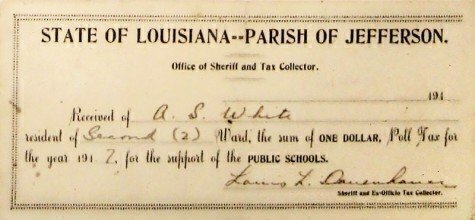 STATE OF LOUISIANA--PARISH OF JEFFERSON.
Office of Sheriff and Tax Collector.
191
Received of A. S. White
resident of Second (2) Ward, the sum of ONE DOLLAR, Poll Tax for
the year 1917, for the support of the PUBLIC SCHOOLS.
Louis L.
Sheriff and Ex-Officio Tax Collector.